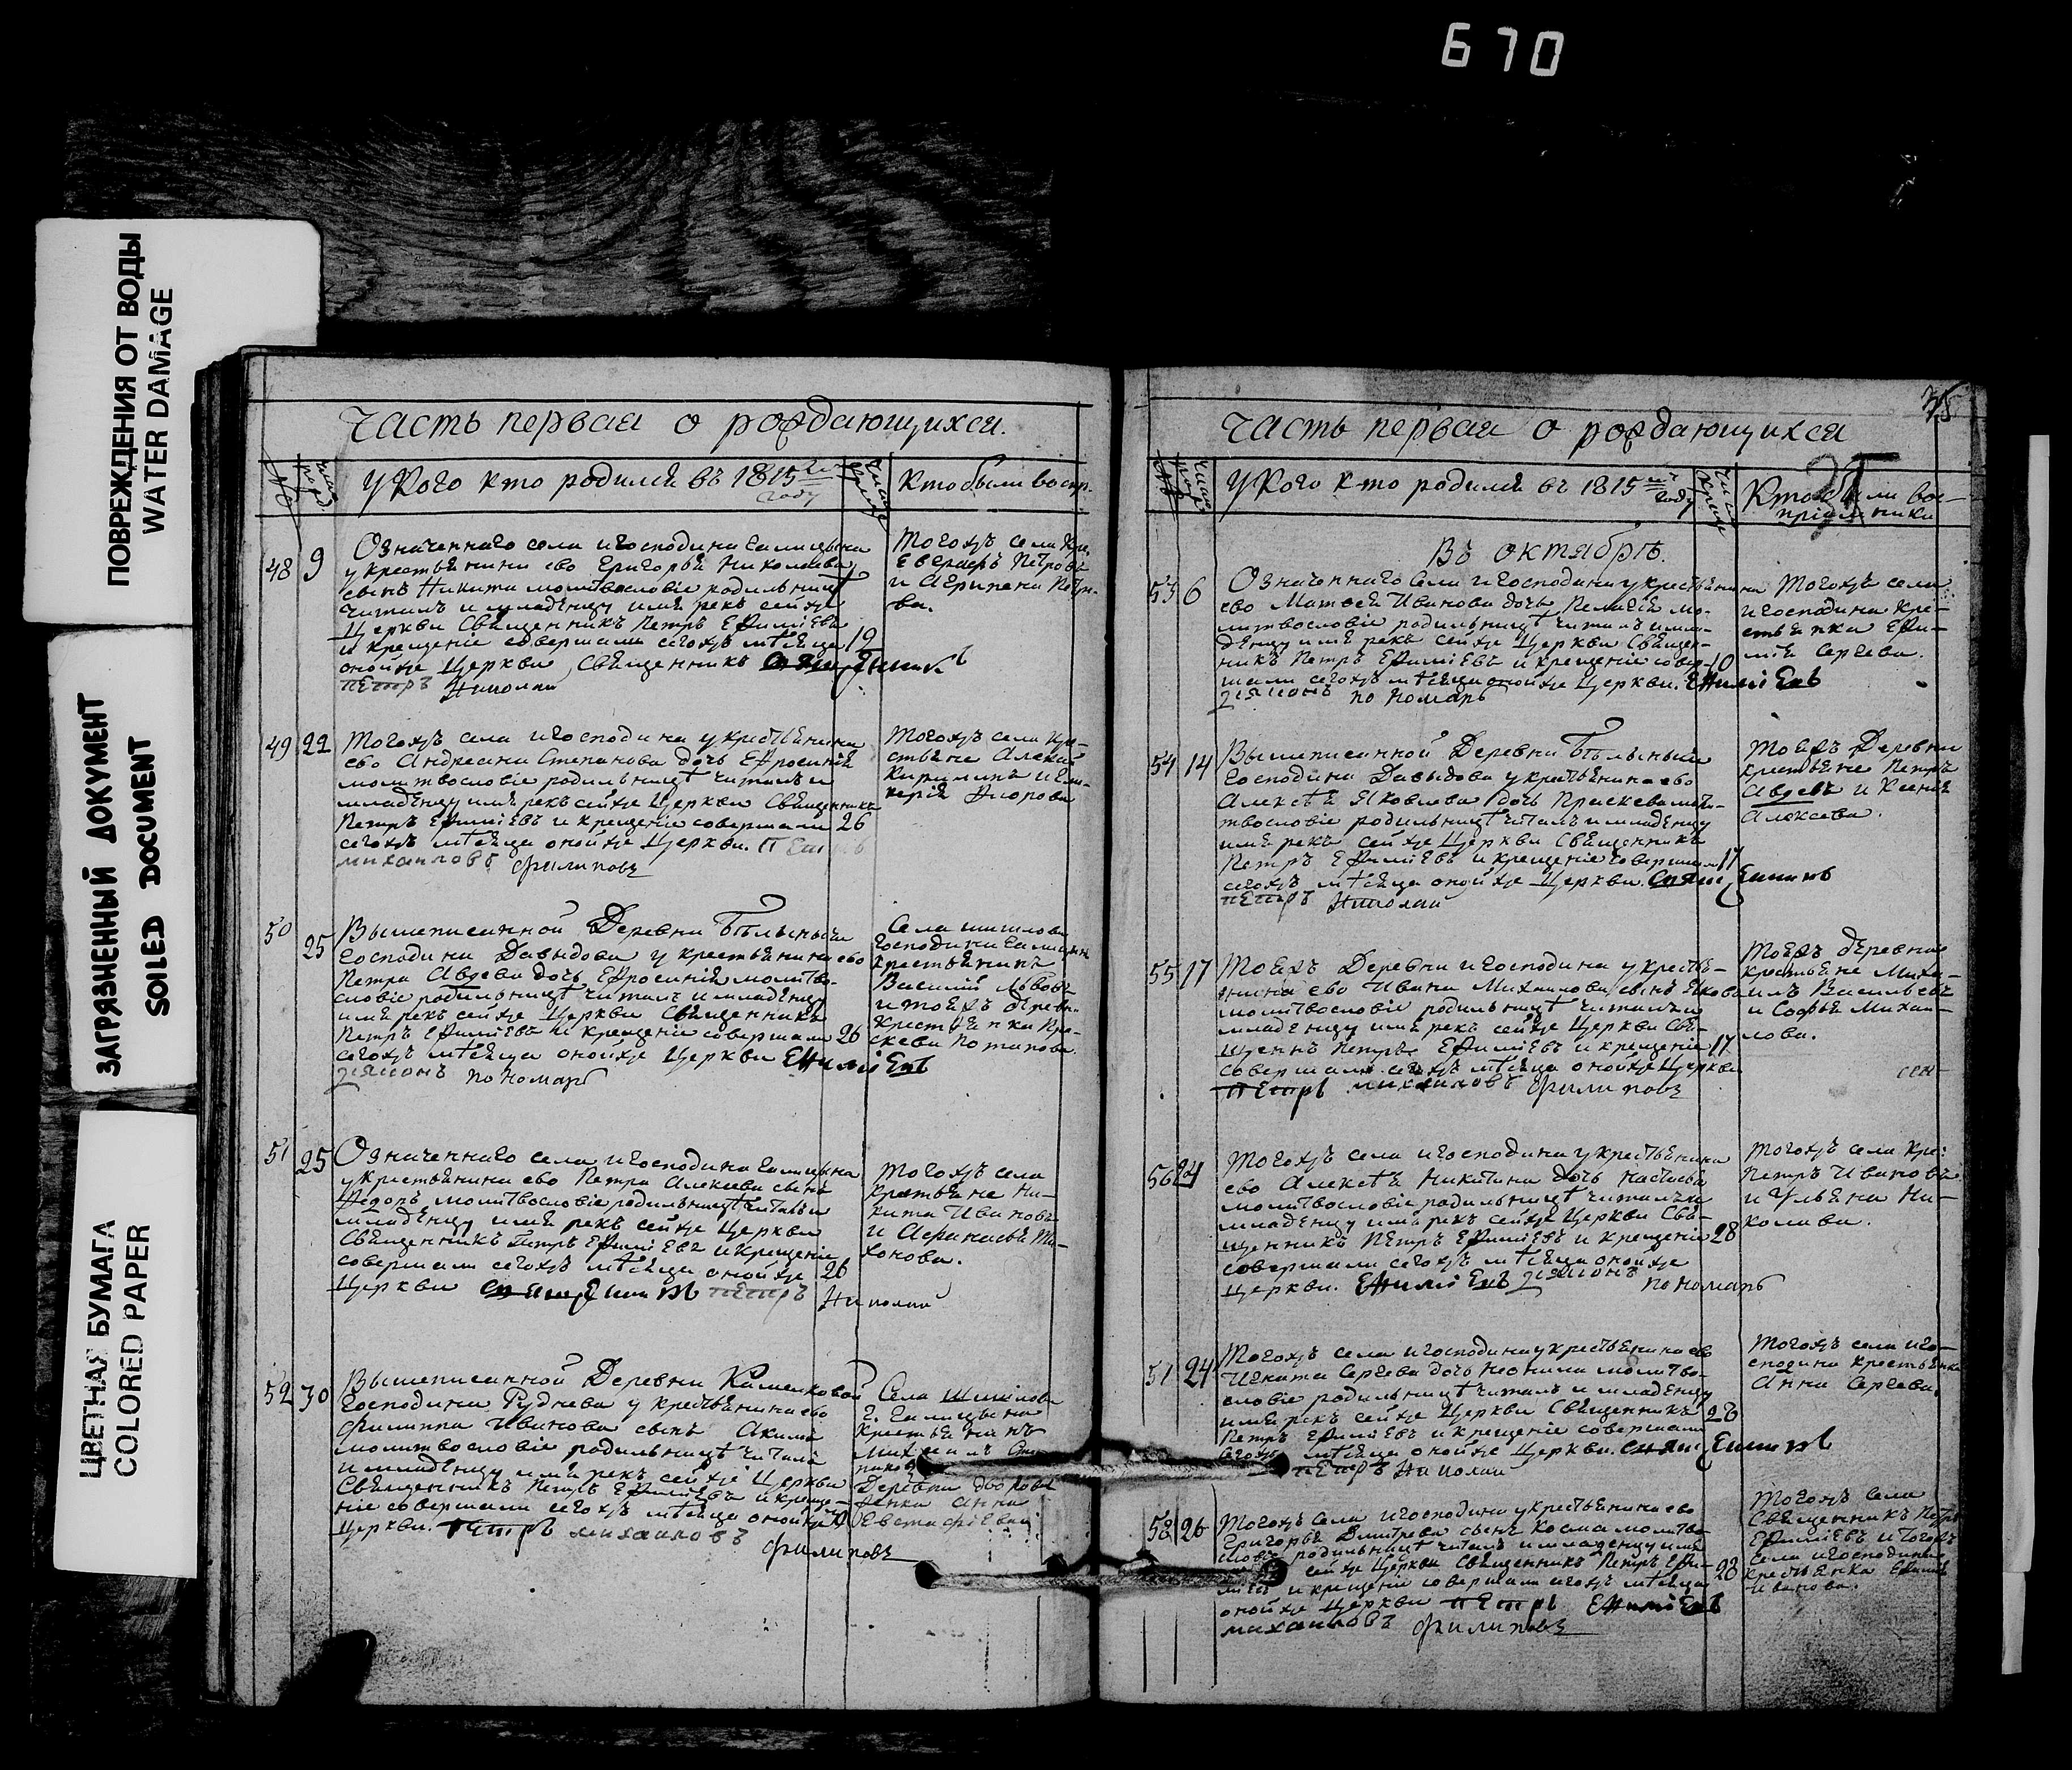 670
ПОВРЕЖДЕНИЯ ОТ ВОДЫ
WATER DAMAGE
ЗАГРЯЗНЕННЫЙ ДОКУМЕНТ
SOILED DOCUMENT
ЦВЕТНАЯ БУМАГА
COLORED PAPER
Часть первая о рождающихся.
У кого кто родился въ 1815
году
Кто были воспр.
48 9
Означеннаго села и господина Галицына
у крестьянина ево Григорья Николаева
сынъ Никита молитвословіе родильницѣ
читалъ и младенцу имя рекъ сей же
Церкви Священникъ Петръ Ефиміевъ
и крещеніе совершали сегожъ мѣсяца 12
оной же Церкви Священникъ
петръ Николай
Тогожъ села Кре.
Евграфъ Петровъ
и Агрипена Петро-
ва.
49 22
Тогожъ села и господина у крестьянина
ево Андреяна Степанова дочь Ефросинія
молитвословіе родильницѣ читалъ и
младенцу имя рекъ сей же Церкви Священникъ
Петръ Ефиміевъ и крещеніе совершали 26
сегожъ мѣсяца оной же Церкви. Петръ
михаиловъ филиповъ
Тогожъ села кре-
стьяне Алексей
Кирилинъ и
50 25
Вышеписанной Деревни Бѣльницы
Господина Давыдова у крестьянина ево
Петра Авдева дочь Ефросинія молитво-
словіе родильницѣ читалъ и младенцу
имя рекъ сей же Церкви Священникъ
Петръ Ефиміевъ и крещеніе совершали 26
сегожъ мѣсяца оной же Церкви Ефиміевъ
пономарь
Села шишлова
господина Галицына
крестьянинъ
Василій Львовъ
и тояжъ деревни
крестьянка Пра-
скева Потапова.
51 25
Означеннаго села и господина Галицына
у крестьянина ево Петра Алексева сынъ
Федоръ молитвословіе родильницѣ читалъ и
младенцу имя рекъ сей же Церкви
Священникъ Петръ Ефиміевъ и крещеніе
совершали сегожъ мѣсяца оной же 26
Церкви петръ Николай
Тогожъ села
крестьяне Ни-
кита Ивановъ
и Афанасья Ти-
хонова.
52 30
Вышеписанной Деревни Камелковой
Господина Руднева у крестьянина ево
Филиппа Иванова сынъ Акима
молитвословіе родильницѣ читалъ
и младенцу имя рекъ сей же Церкви
Священникъ Петръ Ефиміевъ и креще-
ніе совершали сегожъ мѣсяца оной же
Церкви. Петръ михаиловъ
филиповъ
Села шишлова
г. Галицына
крестьянинъ
Михаилъ
Деревни
Анна
Евстафіева
35
Часть первая о рождающихся
У кого кто родился въ 1815
году
Кто были вос-
пріемники
Въ октябрѣ.
53 6
Означеннаго села и господина у крестьянина
ево Матвея Иванова дочь Пелагія мо-
литвословіе родильницѣ читалъ и мла-
денцу имя рекъ сей же Церкви Священ-
никъ Петръ Ефиміевъ и крещеніе совер- 10
шали сегожъ мѣсяца оной же Церкви. Ефиміевъ
пономарь
Тогожъ села
и господина кре-
стьянка Ефи-
мія Сергева.
54 14
Вышеписанной Деревни Бѣльницы
Господина Давыдова у крестьянина ево
Алексея Яковлева дочь Праскева моли-
твословіе родильницѣ читалъ и младенцу
имя рекъ сей же Церкви Священникъ
Петръ Ефиміевъ и крещеніе совершали 17
сегожъ мѣсяца оной же Церкви. Священникъ
петръ Николай
Тояжъ Деревни
крестьяне Петръ
Авдевъ и Ксенія
Алексева.
55 17
Тояжъ Деревни и господина у крестья-
нина ево Ивана Михаилова сынъ Якова
молитвословіе родильницѣ читалъ и
младенцу имя рекъ сей же Церкви Свя-
щеннъ Петръ Ефиміевъ и крещеніе 17
совершали сегожъ мѣсяца оной же Церкви
Петръ михаиловъ филиповъ
Тояжъ деревни
крестьяне Миха-
илъ Васильевъ
и Софья Михаи-
лова.
56 24
Тогожъ села и господина у крестьянина
ево Алексея Никитина дочь Настасья
молитвословіе родильницѣ читалъ и
младенцу имя рекъ сей же Церкви Свя-
щенникъ Петръ Ефиміевъ и крещеніе 28
совершали сегожъ мѣсяца оной же
Церкви. Ефиміевъ пономарь
Тогожъ села Кре:
Петръ Ивановъ
и Ульяна Ни-
колаева.
57 24
Тогожъ села и господина у крестьянина ево
Игната Сергева дочь Неонила молитво-
словіе родильницѣ читалъ и младенцу
имя рекъ сей же Церкви Священникъ 28
Петръ Ефиміевъ и крещеніе совершали
сегожъ мѣсяца оной же Церкви. Священникъ
петръ Николай
Тогожъ села и го-
сподина крестьянка
Анна Сергева.
58 26
Тогожъ села и господина у крестьянина ево
Григорья Дмитрева сынъ Косма молитво-
словіе родильницѣ читалъ и младенцу имя
сей же Церкви Священникъ Петръ Ефи- 28
міевъ и крещеніе совершали сегожъ мѣсяца
оной же Церкви Петръ Ефиміевъ
михаиловъ филиповъ
Тогожъ села
Священникъ Петръ
Ефиміевъ и Тогожъ
села и господина
крестьянка Ефимія
Иванова.